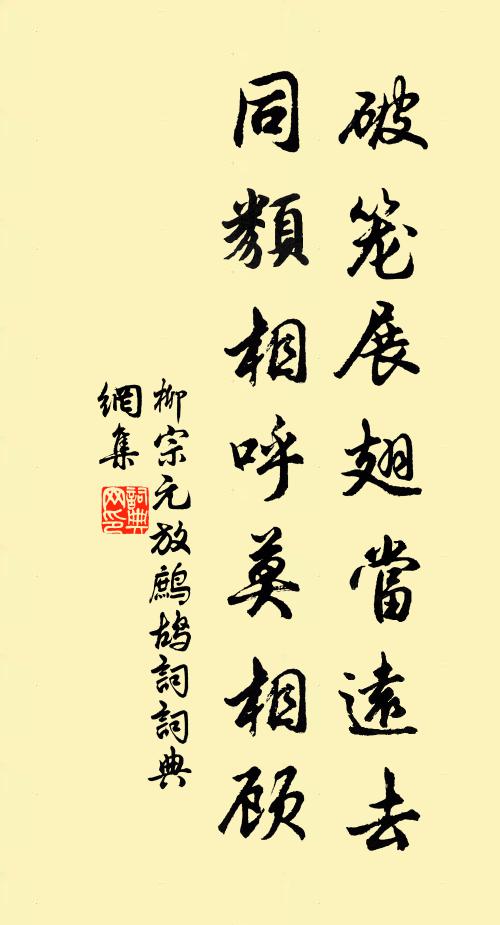 破笼展翅當遠去
同類相呼莫相顾
柳宗元放鷓鴣詞詞典
網集
詞典
网印